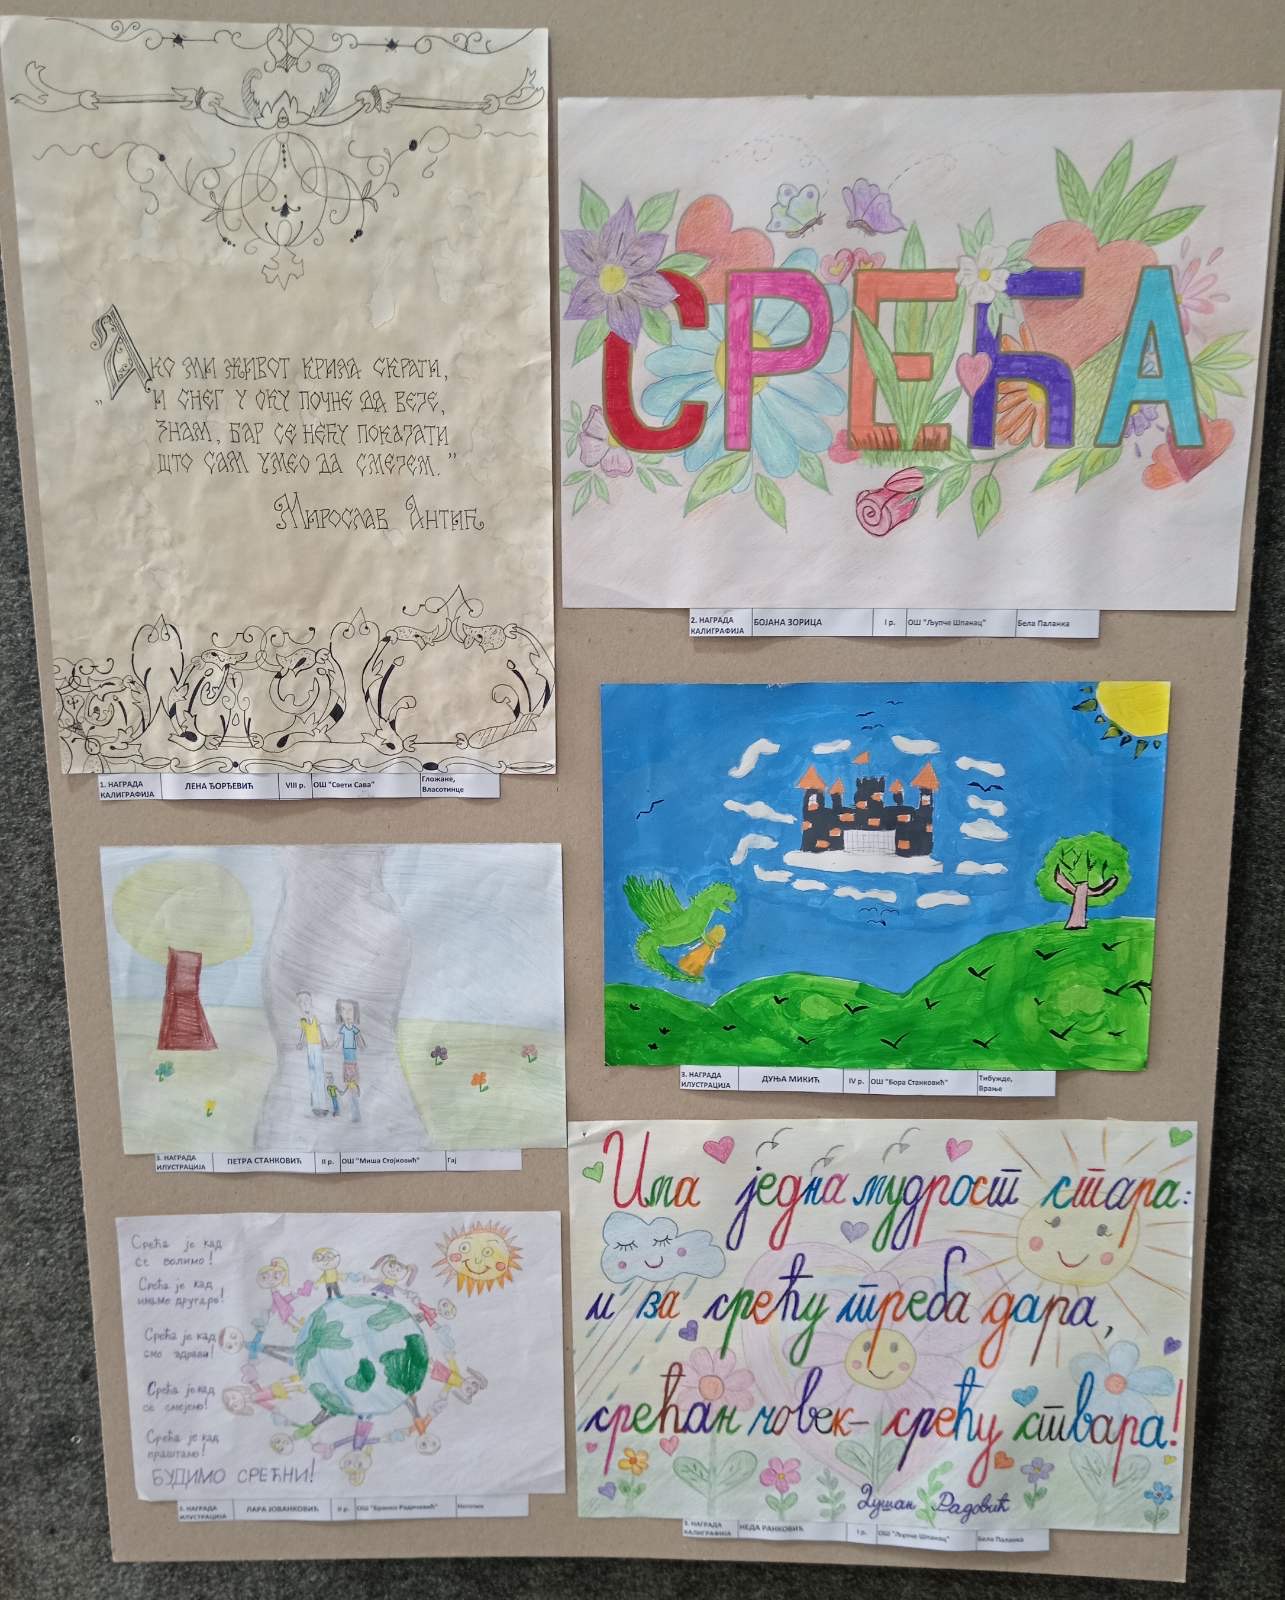 Ако ми живот крила скрати,
„ и снег у оку почне да веје,
знам, бар се нећу покајати
што сам умео да смејем.”
Мирослав Антић
1. НАГРАДА КАЛИГРАФИЈА ЛЕНА ЂОРЂЕВИЋ VIII р. ОШ "Свети Сава" Гложане, Власотинце
СРЕЋА
2. НАГРАДА КАЛИГРАФИЈА БОЈАНА ЗОРИЦА I р. ОШ "Љупче Шпанац" Бела Паланка
3. НАГРАДА ИЛУСТРАЦИЈА ДУЊА МИКИЋ IV р. ОШ "Бора Станковић" Тибужде, Врање
3. НАГРАДА ИЛУСТРАЦИЈА ПЕТРА СТАНКОВИЋ II р. ОШ "Миша Стојковић" Гај
Срећа је кад
се волимо!
Срећа је кад
имамо другаре!
Срећа је кад
смо здрави!
Срећа је кад
се смејемо!
Срећа је кад
праштамо!
БУДИМО СРЕЋНИ!
НАГРАДА ИЛУСТРАЦИЈА ЛАРА ЈОВАНКОВИЋ II р. ОШ "Бранко Радичевић" Неготин
Има једна мудрост стара:
и за срећу треба дара,
срећан човек – срећу ствара!
Душан Радовић
3. НАГРАДА КАЛИГРАФИЈА НЕДА РАНКОВИЋ I р. ОШ "Љупче Шпанац" Бела Паланка